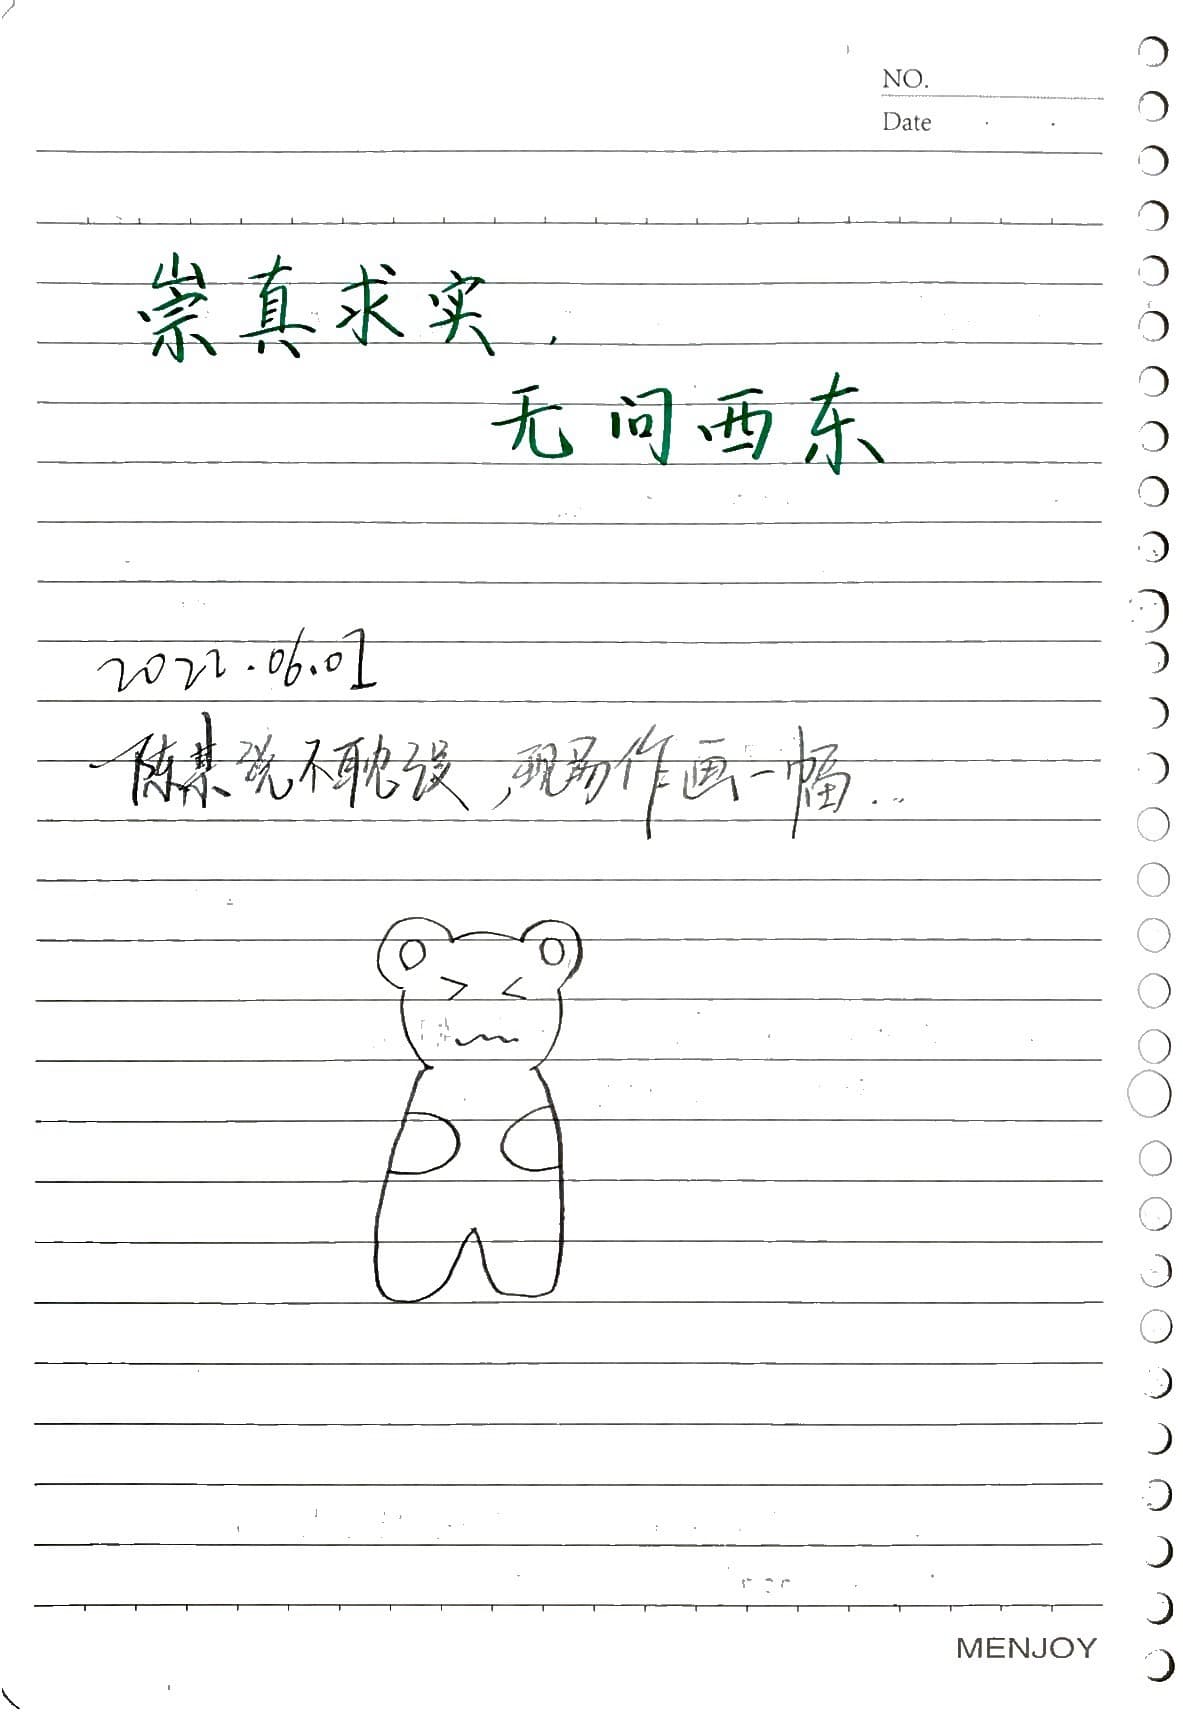 NO.
Date
崇真求实,
无问西东
2022.06.01
陈某说不耽误,现另作画一幅...
MENJOY